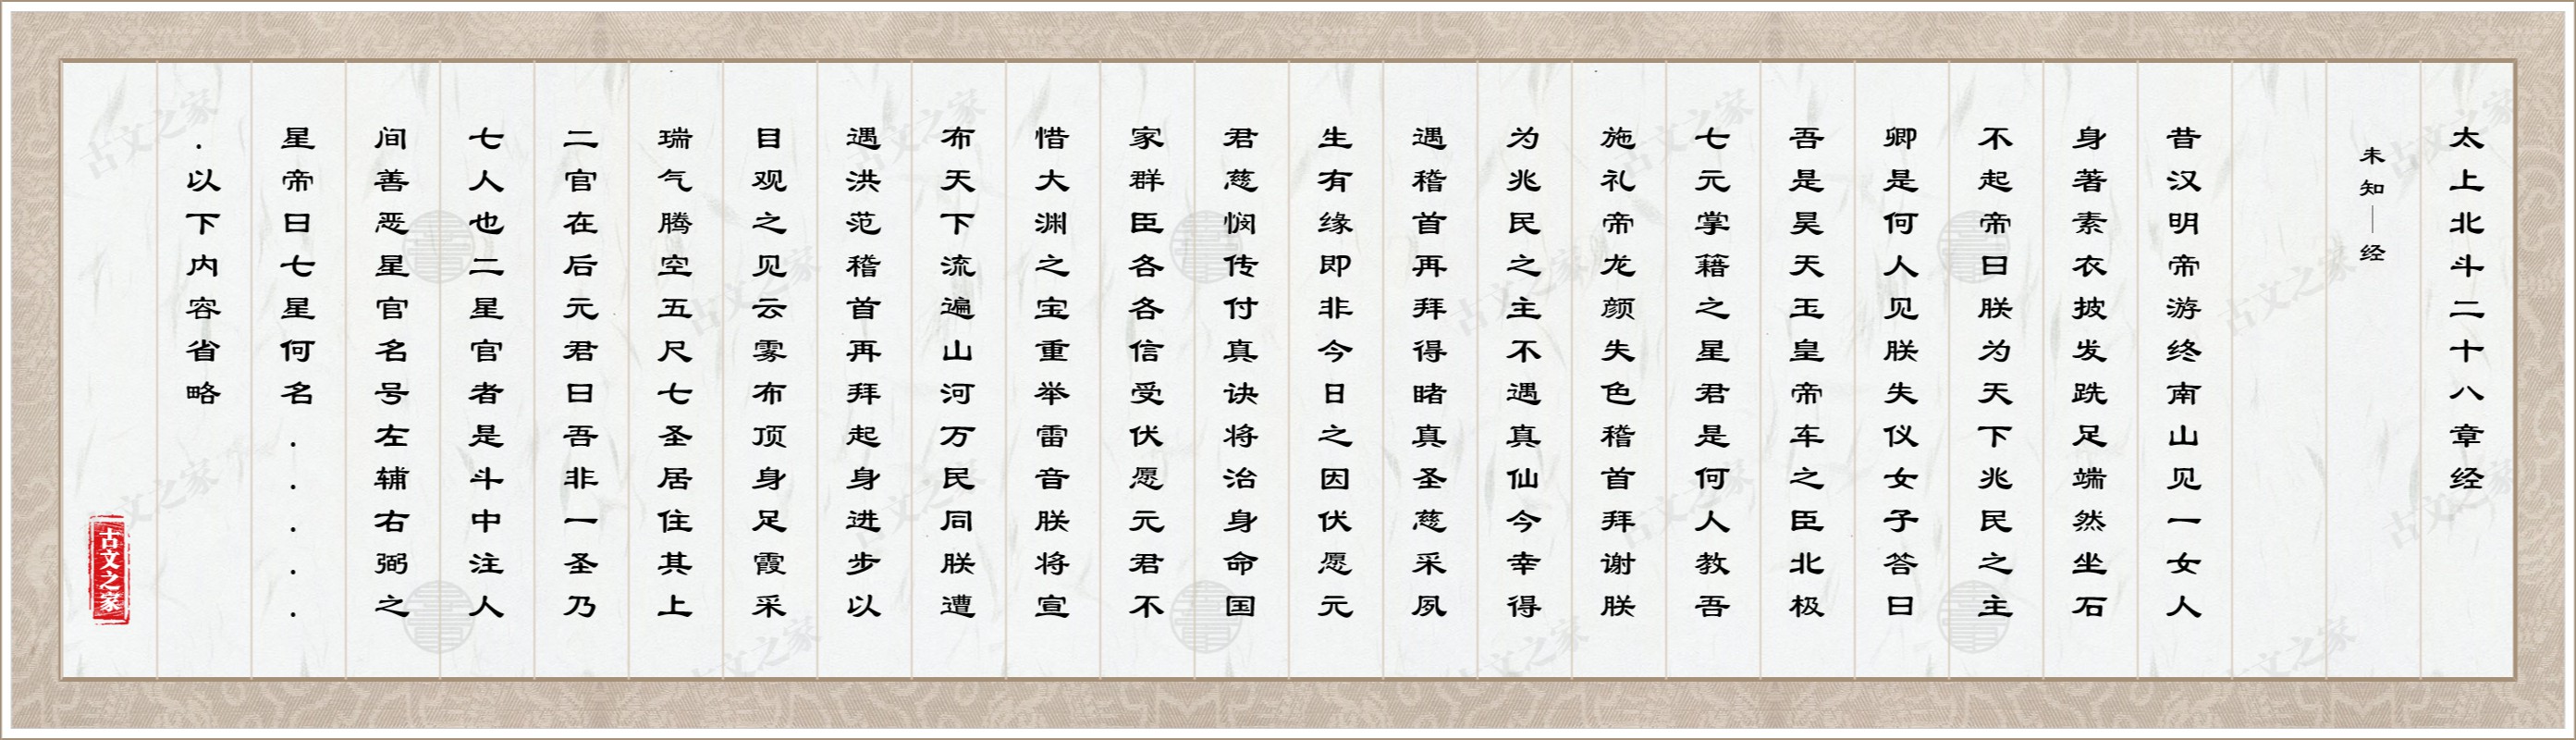 太上北斗二十八章经
未知｜经
昔汉明帝游终南山见一女人
身著素衣披发跣足端然坐石
不起帝曰朕为天下兆民之主
卿是何人见朕失仪女子答曰
吾是昊天玉皇帝车之臣北极
七元掌籍之星君是何人教吾
施礼帝龙颜失色稽首拜谢朕
为兆民之主不遇真仙今幸得
遇稽首再拜得睹真圣慈采夙
生有缘即非今日之因伏愿元
君慈悯传付真诀将治身命国
家群臣各各信受伏愿元君不
惜大渊之宝重举雷音朕将宣
布天下流遍山河万民同朕遭
遇洪范稽首再拜起身进步以
目观之见云雾布顶身足霞采
瑞气腾空五尺七圣居住其上
二官在后元君曰吾非一圣乃
七人也二星官者是斗中注人
间善恶星官名号左辅右弼之
星帝曰七星何名.....
.以下内容省略
古文之家